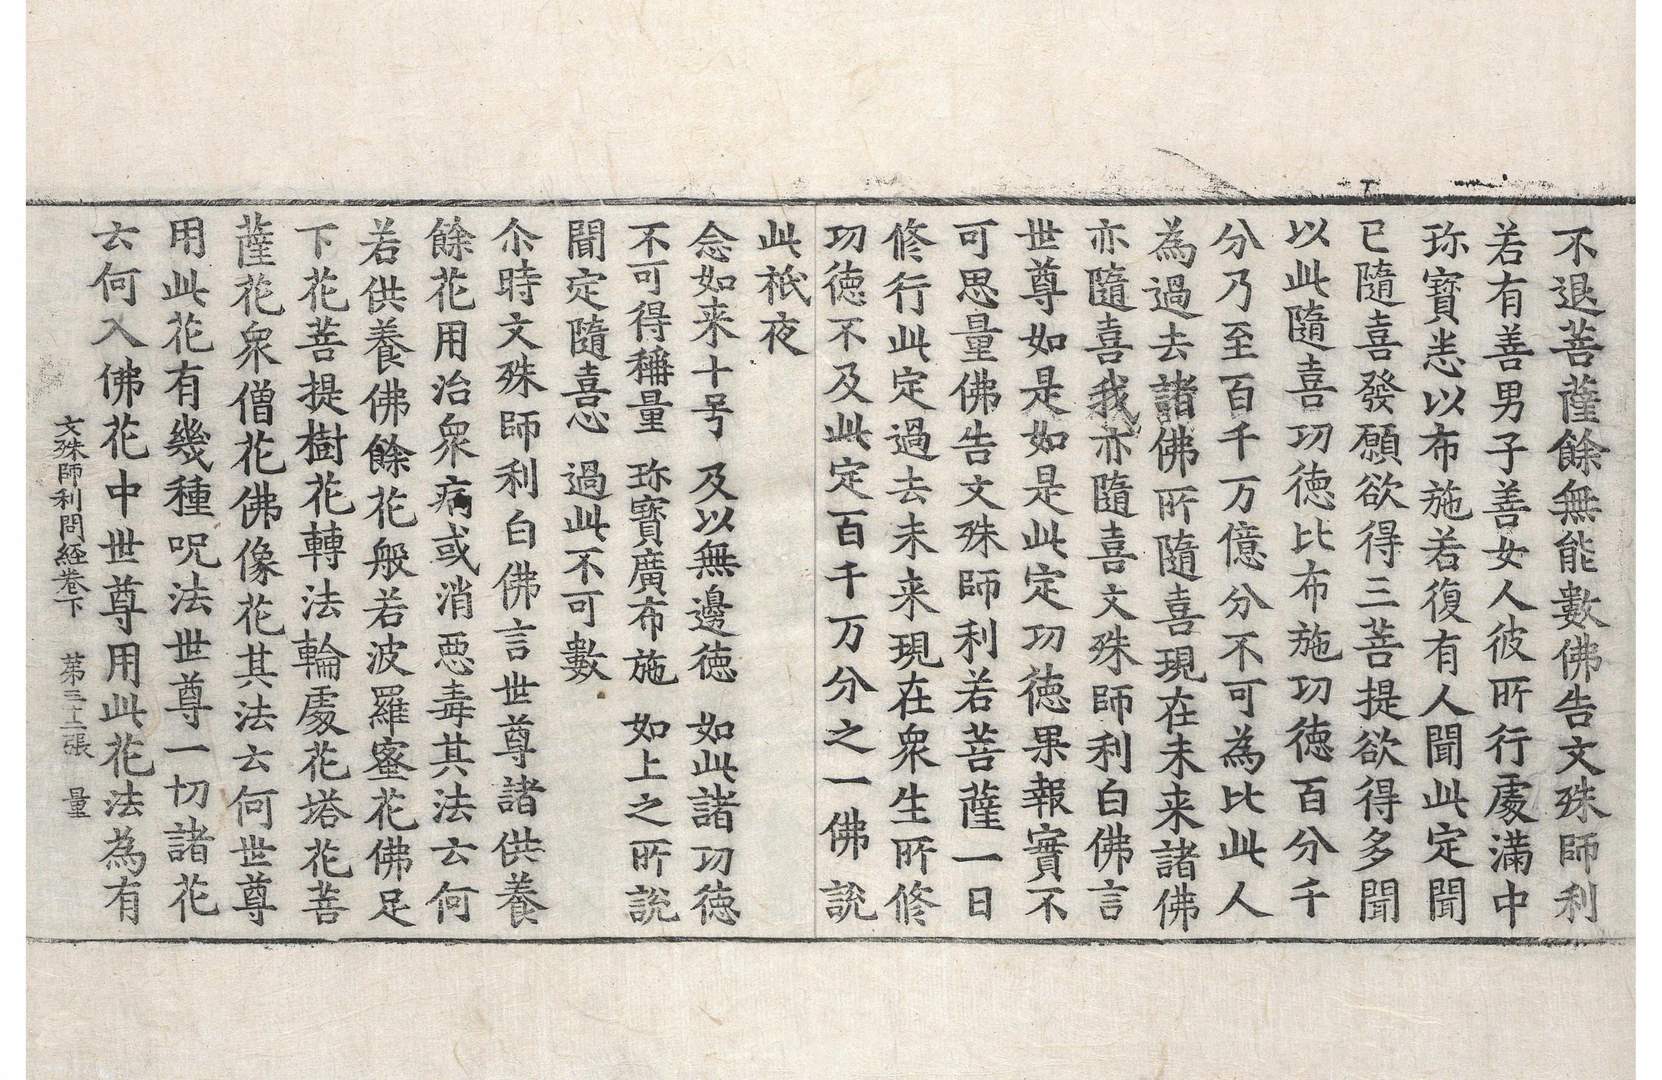 不退菩薩餘無能數佛告文殊師利
若有善男子善女人彼所行處滿中
珎寶悉以布施若復有人聞此定聞
已隨喜發願欲得三菩提欲得多聞
以此隨喜功徳比布施功徳百分千
分乃至百千万億分不可為比此人
為過去諸佛所隨喜現在未来諸佛
亦隨喜我亦隨喜文殊師利白佛言
世尊如是如是此定功徳果報實不
可思量佛告文殊師利若菩薩一日
修行此定過去未来現在衆生所修
功徳不及此定百千万分之一佛說
此祇夜
念如来十号　及以無邊徳　如此諸功徳
不可得稱量　珎寶廣布施　如上之所說
聞定隨喜心　過此不可數
尒時文殊師利白佛言世尊諸供養
餘花用治衆病或消惡毒其法云何
若供養佛餘花般若波羅蜜花佛足
下花菩提樹花轉法輪處花塔花菩
薩花衆僧花佛像花其法云何世尊
用此花有幾種呪法世尊一切諸花
云何入佛花中世尊用此花法為有
文殊師利問経巻下　第三十二張　量